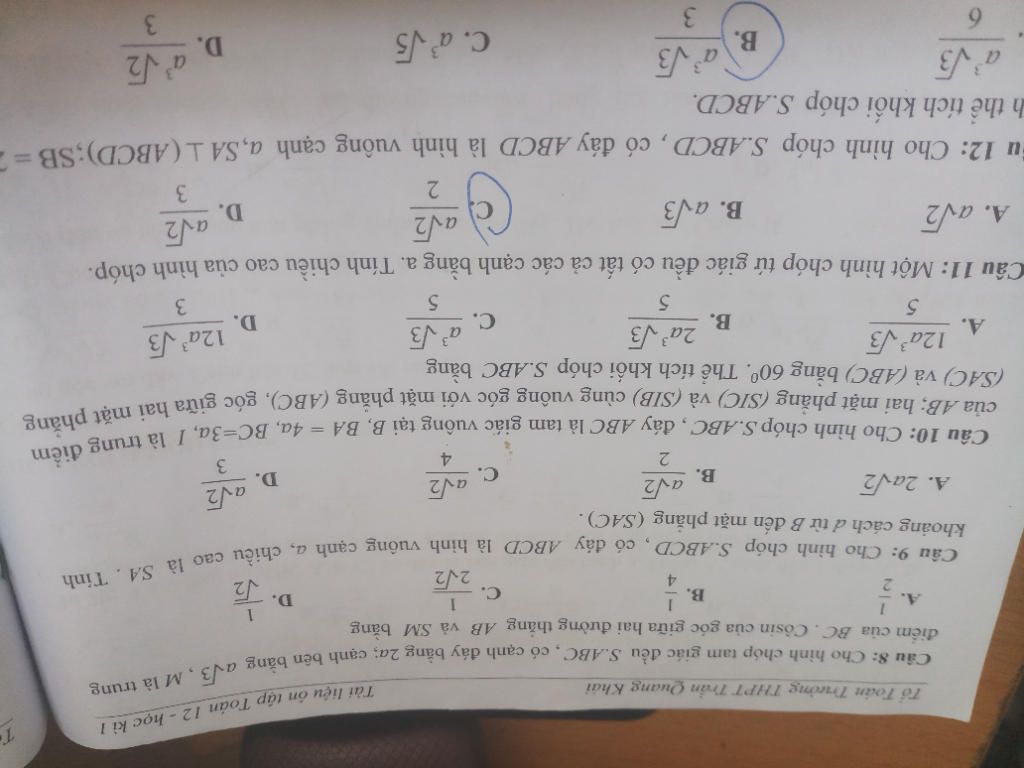 Tổ Toán Trường THPT Trần Quang Khải Tài liệu ôn tập Toán 12 - học kì 1
Câu 8: Cho hình chóp tam giác đều S.ABC, có cạnh đáy bằng 2a; cạnh bên bằng a√3, M là trung
điểm của BC. Côsin của góc giữa hai đường thẳng AB và SM bằng
A. 1/2 B. 1/4 C. 1/(2√2) D. 1/√2
Câu 9: Cho hình chóp S.ABCD, có đáy ABCD là hình vuông cạnh a, chiều cao là SA. Tính
khoảng cách d từ B đến mặt phẳng (SAC).
A. 2a√2 B. a√2/2 C. a√2/4 D. a√2/3
Câu 10: Cho hình chóp S.ABC, đáy ABC là tam giác vuông tại B, BA = 4a, BC=3a, I là trung điểm
của AB; hai mặt phẳng (SIC) và (SIB) cùng vuông góc với mặt phẳng (ABC), góc giữa hai mặt phẳng
(SAC) và (ABC) bằng 60⁰. Thể tích khối chóp S.ABC bằng
A. 12a³√3/5 B. 2a³√3/5 C. a³√3/5 D. 12a³√3/3
Câu 11: Một hình chóp tứ giác đều có tất cả các cạnh bằng a. Tính chiều cao của hình chóp.
A. a√2 B. a√3 C. a√2/2 D. a√2/3
12: Cho hình chóp S.ABCD, có đáy ABCD là hình vuông cạnh a, SA ⊥ (ABCD); SB =
thể tích khối chóp S.ABCD.
a³√3/6 B. a³√3/3 C. a³√5 D. a³√2/3